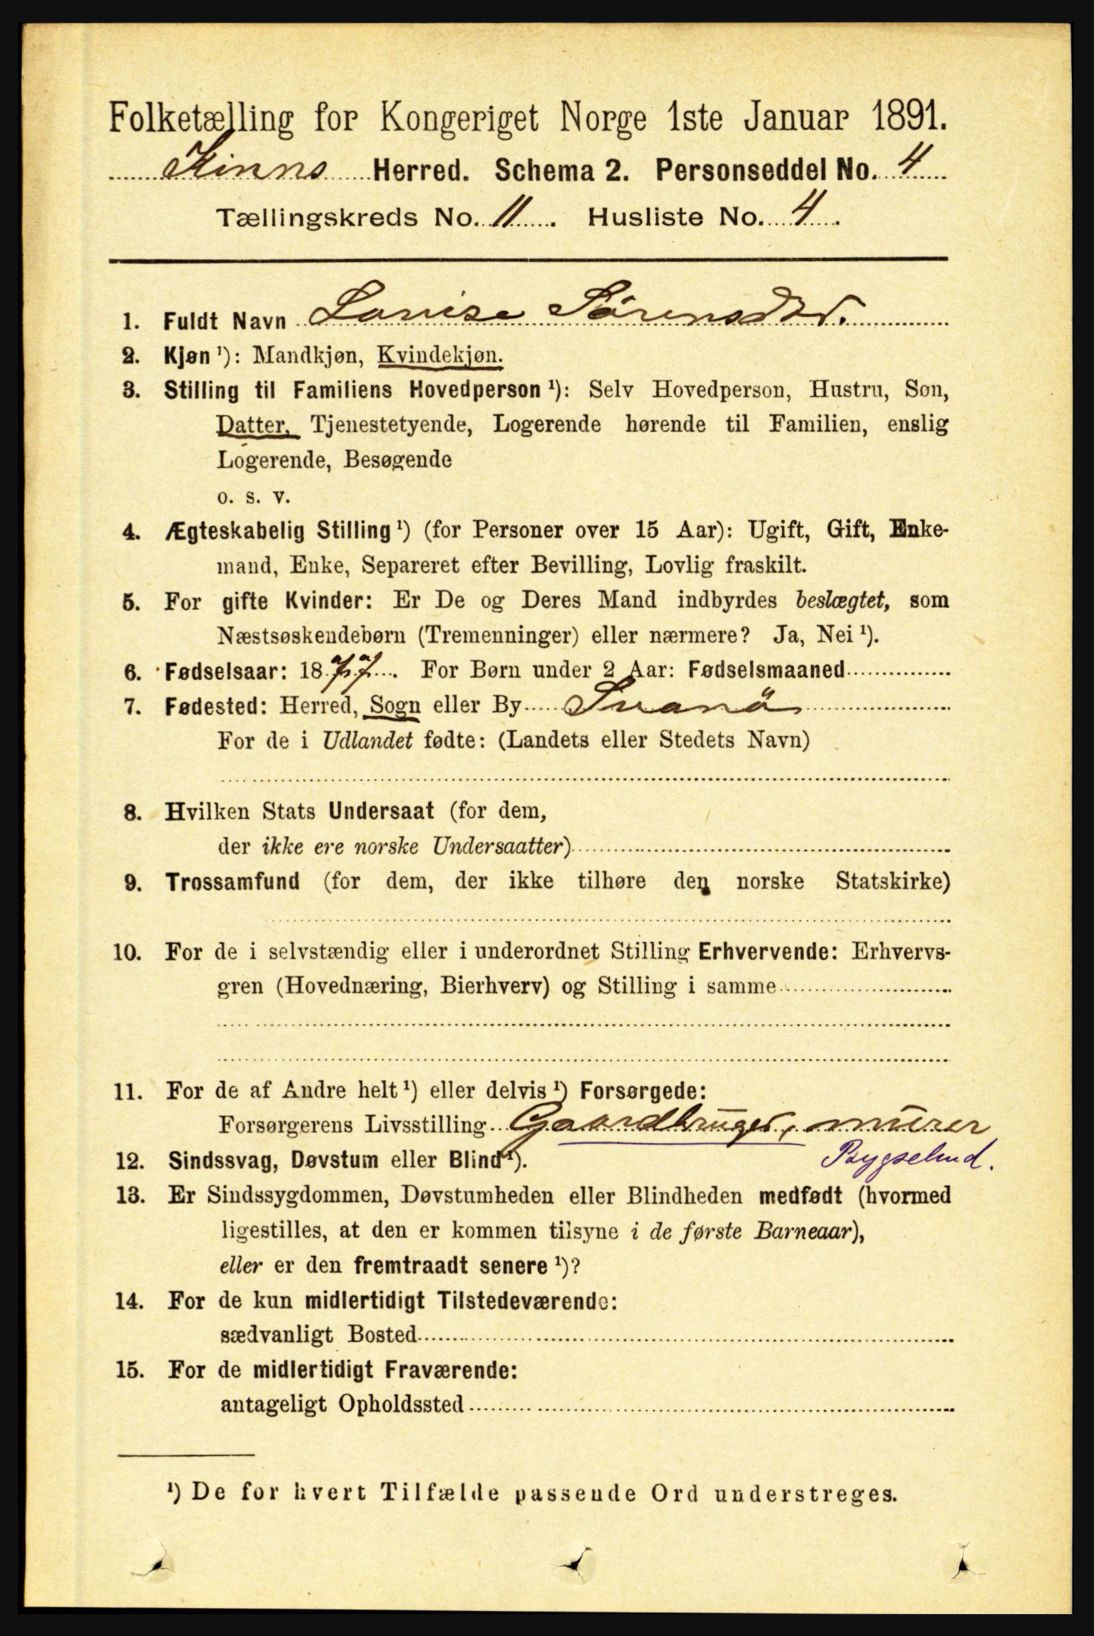 Folketælling for Kongeriget Norge 1ste Januar 1891.
Kinns Herred. Schema 2. Personseddel No. 4
Tællingskreds No. 11. Husliste No. 4.
1. Fuldt Navn Lovise Sørensdtr.
2. Kjøn ¹): Mandkjøn, Kvindekjøn.
3. Stilling til Familiens Hovedperson ¹): Selv Hovedperson, Hustru, Søn,
Datter, Tjenestetyende, Logerende hørende til Familien, enslig
Logerende, Besøgende
o. s. v.
4. Ægteskabelig Stilling ¹) (for Personer over 15 Aar): Ugift, Gift, Enke-
mand, Enke, Separeret efter Bevilling, Lovlig fraskilt.
5. For gifte Kvinder: Er De og Deres Mand indbyrdes beslægtet, som
Næstsøskendebørn (Tremenninger) eller nærmere? Ja, Nei ¹).
6. Fødselsaar: 1877. For Børn under 2 Aar: Fødselsmaaned
7. Fødested: Herred, Sogn eller By Svanö
For de i Udlandet fødte: (Landets eller Stedets Navn)
8. Hvilken Stats Undersaat (for dem,
der ikke ere norske Undersaatter)
9. Trossamfund (for dem, der ikke tilhøre den norske Statskirke)
10. For de i selvstændig eller i underordnet Stilling Erhvervende: Erhvervs-
gren (Hovednæring, Bierhverv) og Stilling i samme
11. For de af Andre helt ¹) eller delvis ¹) Forsørgede:
Forsørgerens Livsstilling Gaardbruger, murer
12. Sindssvag, Døvstum eller Blind ¹). Bygselmd.
13. Er Sindssygdommen, Døvstumheden eller Blindheden medfødt (hvormed
ligestilles, at den er kommen tilsyne i de første Barneaar),
eller er den fremtraadt senere ¹)?
14. For de kun midlertidigt Tilstedeværende:
sædvanligt Bosted
15. For de midlertidigt Fraværende:
antageligt Opholdssted
¹) De for hvert Tilfælde passende Ord understreges.